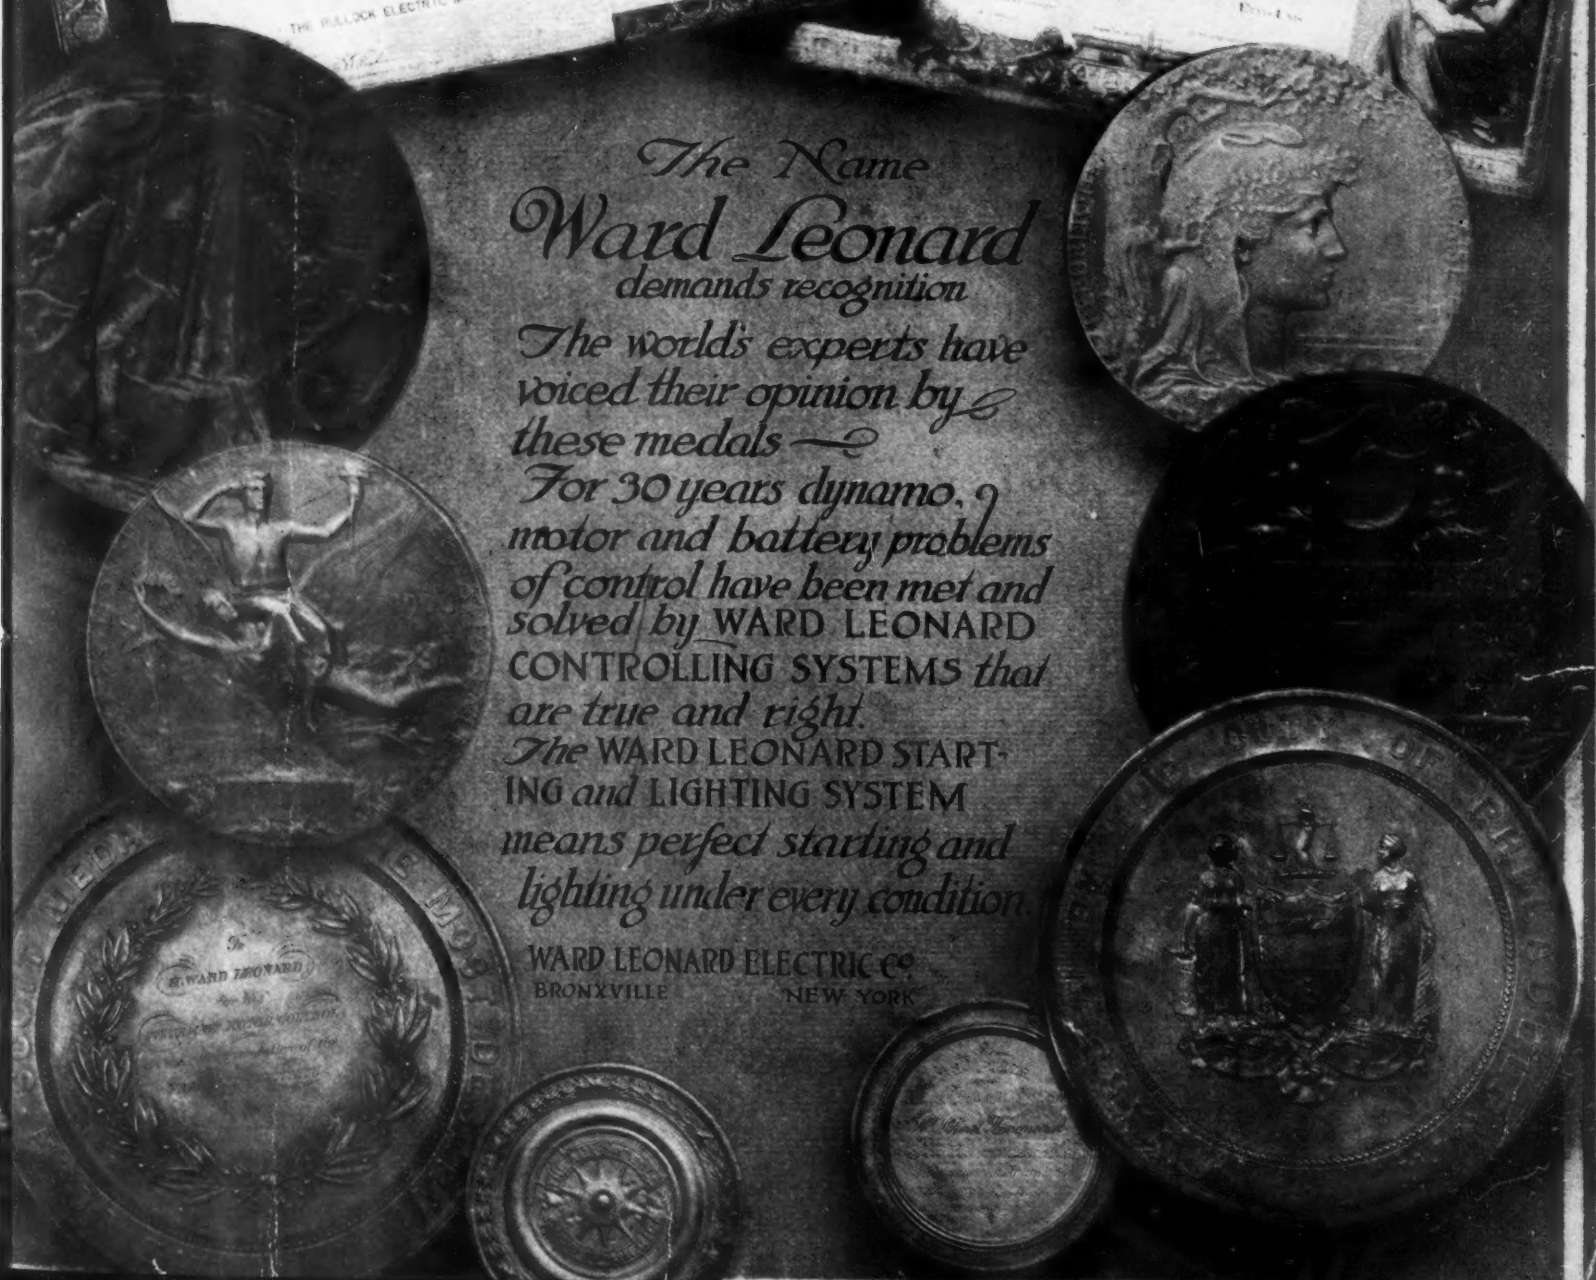 THE BULLOCK ELECTRIC
The Name
Ward Leonard
demands recognition
The world's experts have
voiced their opinion by
these medals
For 30 years dynamo,
motor and battery problems
of control have been met and
solved by WARD LEONARD
CONTROLLING SYSTEMS that
are true and right.
The WARD LEONARD START-
ING and LIGHTING SYSTEM
means perfect starting and
lighting under every condition.
WARD LEONARD ELECTRIC Co
BRONXVILLE NEW YORK
To
H. WARD LEONARD
MEDAL
THE MOST DE
BY THE CITY OF PHILADEL